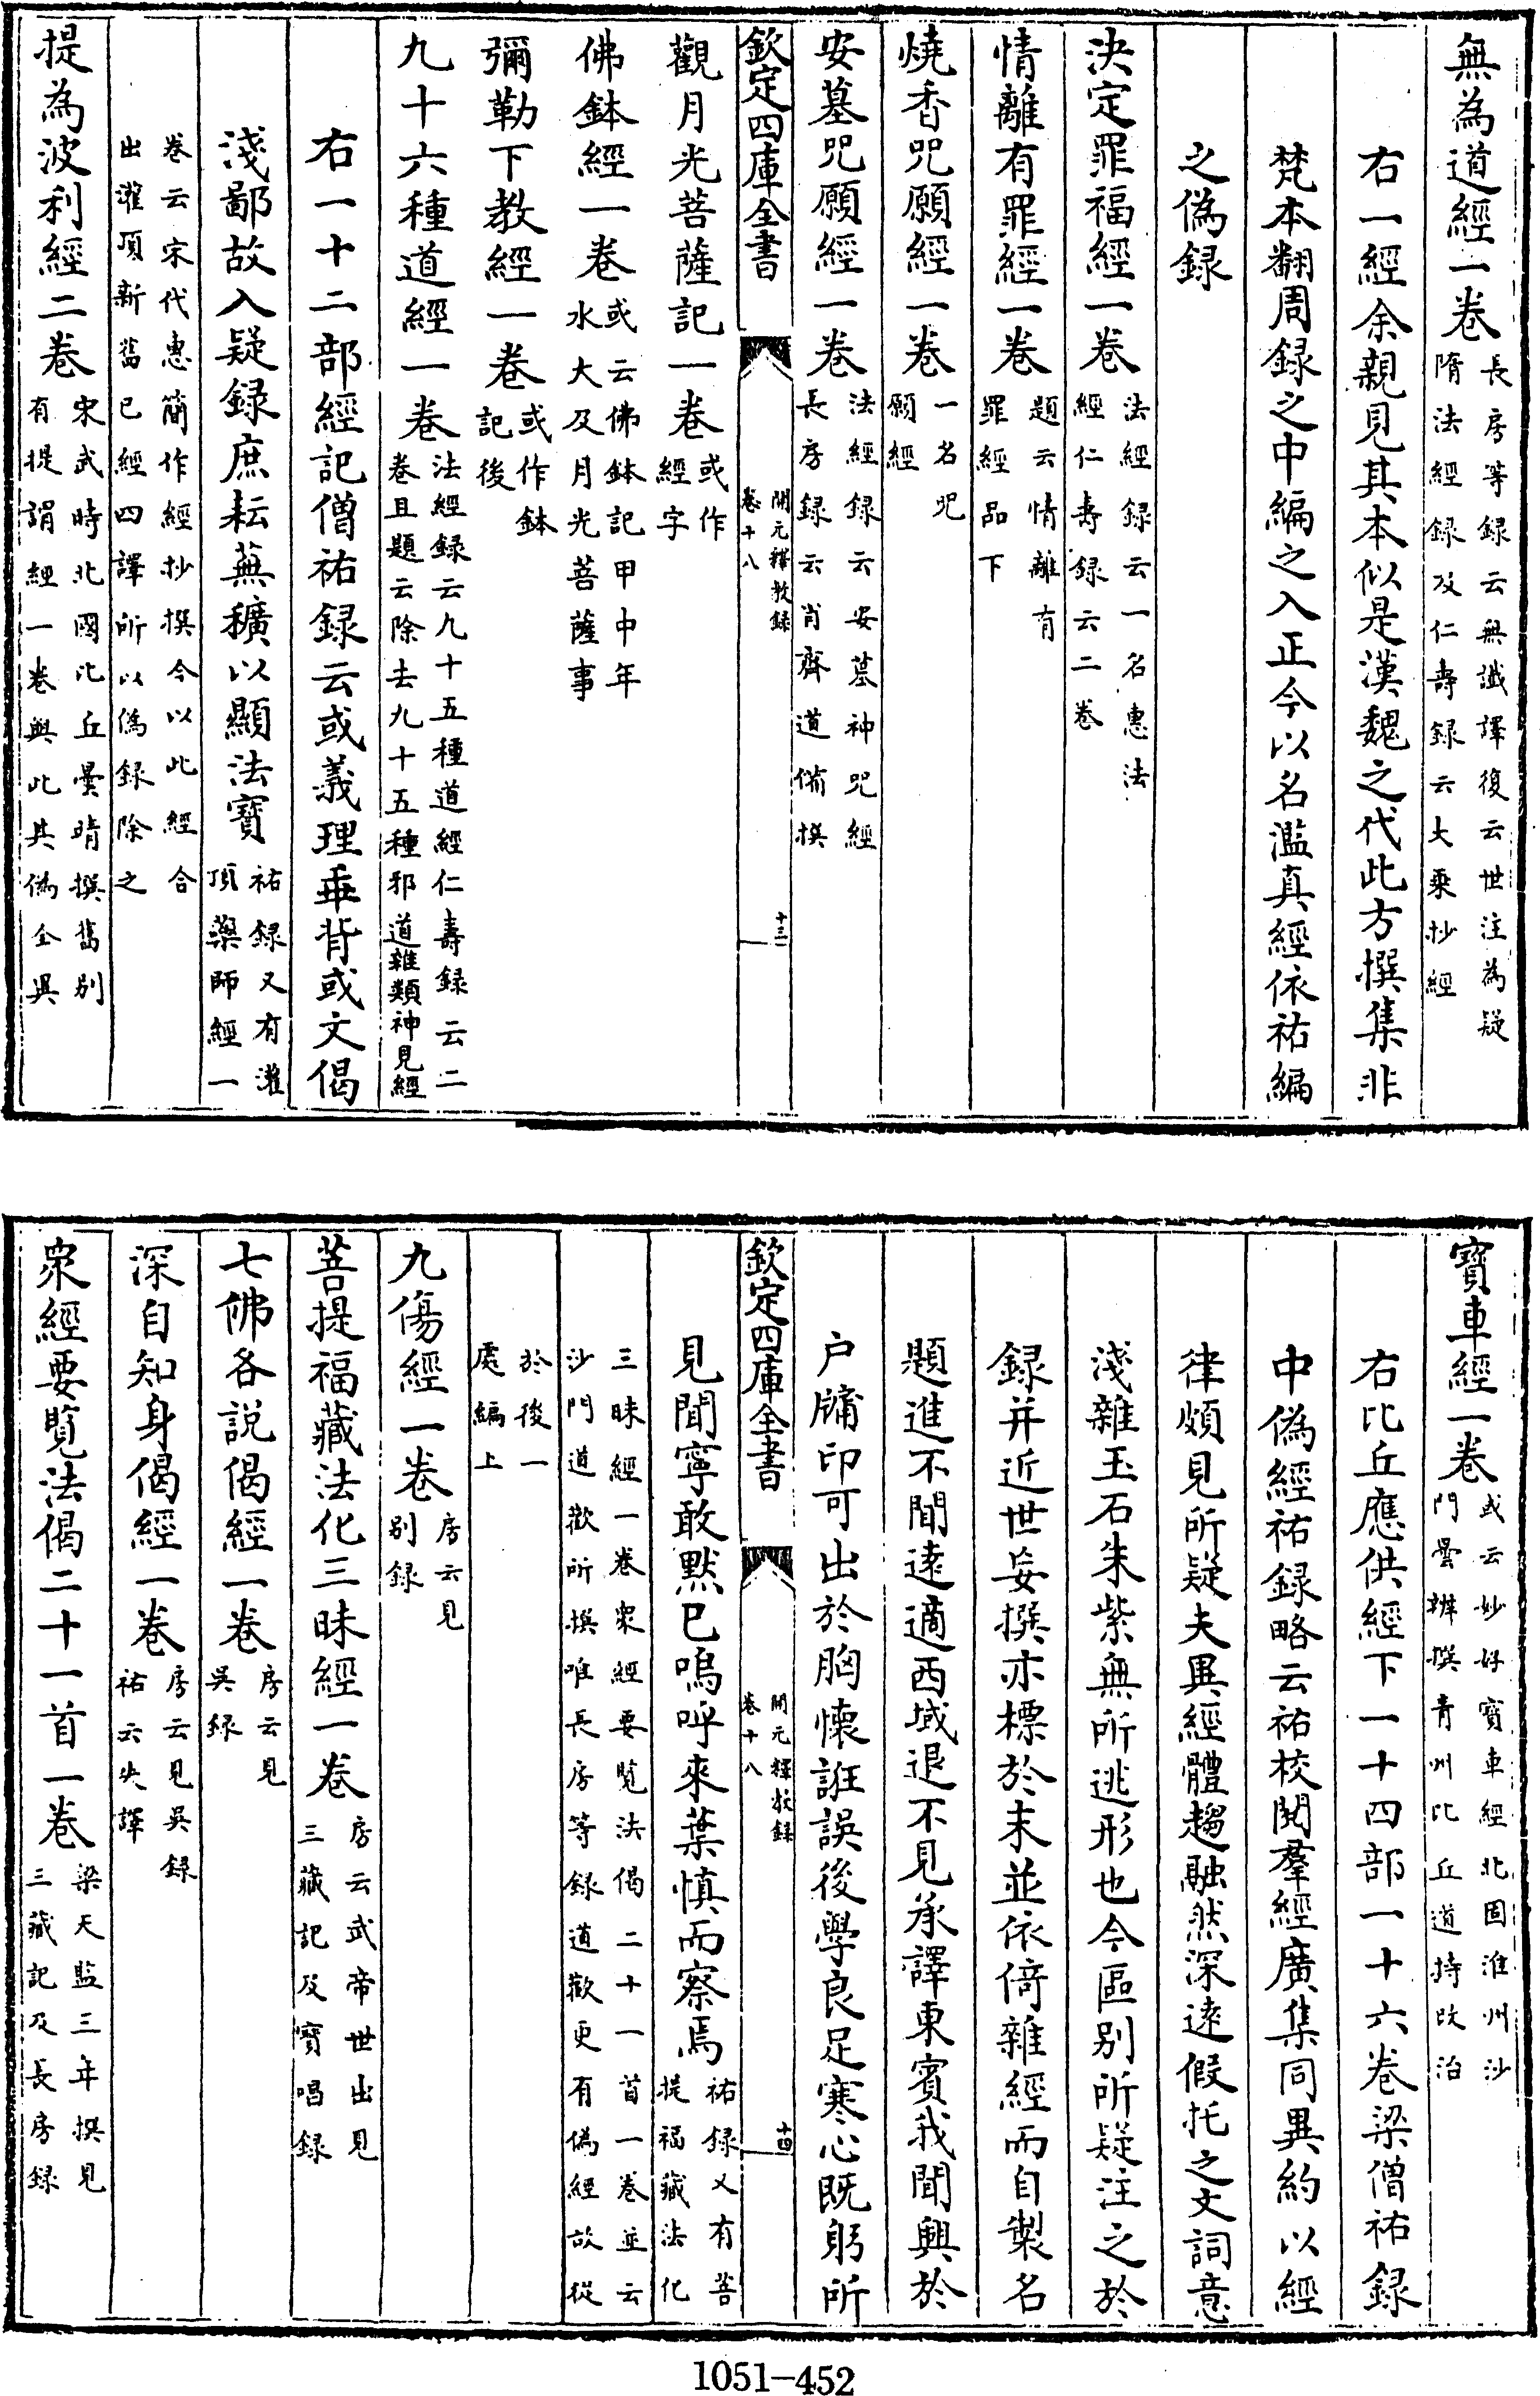 無為道經一卷長房等録云無讖譯復云世注為疑
隋法經録及仁壽録云大乗抄經
右一經余親見其本似是漢魏之代此方撰集非
梵本翻周録之中編之入正今以名濫真經依祐編
之偽録
決定罪福經一卷法經録云一名惠法
經仁壽録云二卷
情離有罪經一卷題云情離有
罪經品下
燒香咒願經一卷一名咒
願經
安墓咒願經一卷法經録云安墓神咒經
長房録云肖齊道備撰
欽定四庫全書
開元釋教録
卷十八
十三
觀月光菩薩記一卷或作
經字
佛鉢經一卷或云佛鉢記甲申年
水大及月光菩薩事
彌勒下教經一卷或作鉢
記後
九十六種道經一卷法經録云九十五種道經仁壽録云二
卷且題云除去九十五種邪道雜類神見經
右一十二部經記僧祐録云或義理乖背或文偈
淺鄙故入疑録庶耘蕪穢以顯法寶祐録又有灌
頂藥師經一
卷云宋代惠簡作經抄撰今以此經合
出灌頂新舊已經四譯所以偽録除之
提為波利經二卷宋武時北國比丘曇晴撰舊别
有提謂經一卷與此其偽全異
寶車經一卷或云妙好寳車經北國淮州沙
門曇辨撰青州比丘道持改治
右比丘應供經下一十四部一十六卷梁僧祐録
中偽經祐録略云祐校閱羣經廣集同異約以經
律頗見所疑夫異經體趨融然深遠假托之文詞意
淺雜玉石朱紫無所逃形也今區别所疑注之於
録并近世妄撰亦標於末並依倚雜經而自製名
題進不聞遠適西域退不見承譯東賓我聞興於
户牖印可出於胸懷誑誤後學良足寒心既躬所
欽定四庫全書
開元釋教録
卷十八
十四
見聞寧敢默已嗚呼來葉慎而察焉祐録又有菩
提福藏法化
三昧經一卷衆經要覧法偈二十一首一卷並云
沙門道歡所撰唯長房等録道歡更有偽經故從
於後一
處編上
九傷經一卷房云見
别録
菩提福藏法化三昧經一卷房云武帝世出見
三藏記及寶唱録
七佛各說偈經一卷房云見
吳録
深自知身偈經一卷房云見吳録
祐云失譯
衆經要覧法偈二十一首一卷梁天監三年撰見
三藏記及長房録
1051-452